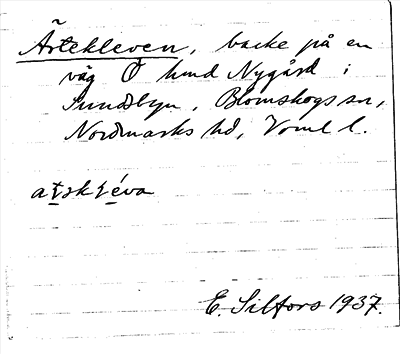 Ärtekleven, backe på en
väg O hund Nygård i
Sundsbyn, Blomskogs sn,
Nordmarks hd, Vrml l.
E. Silfors 1937.